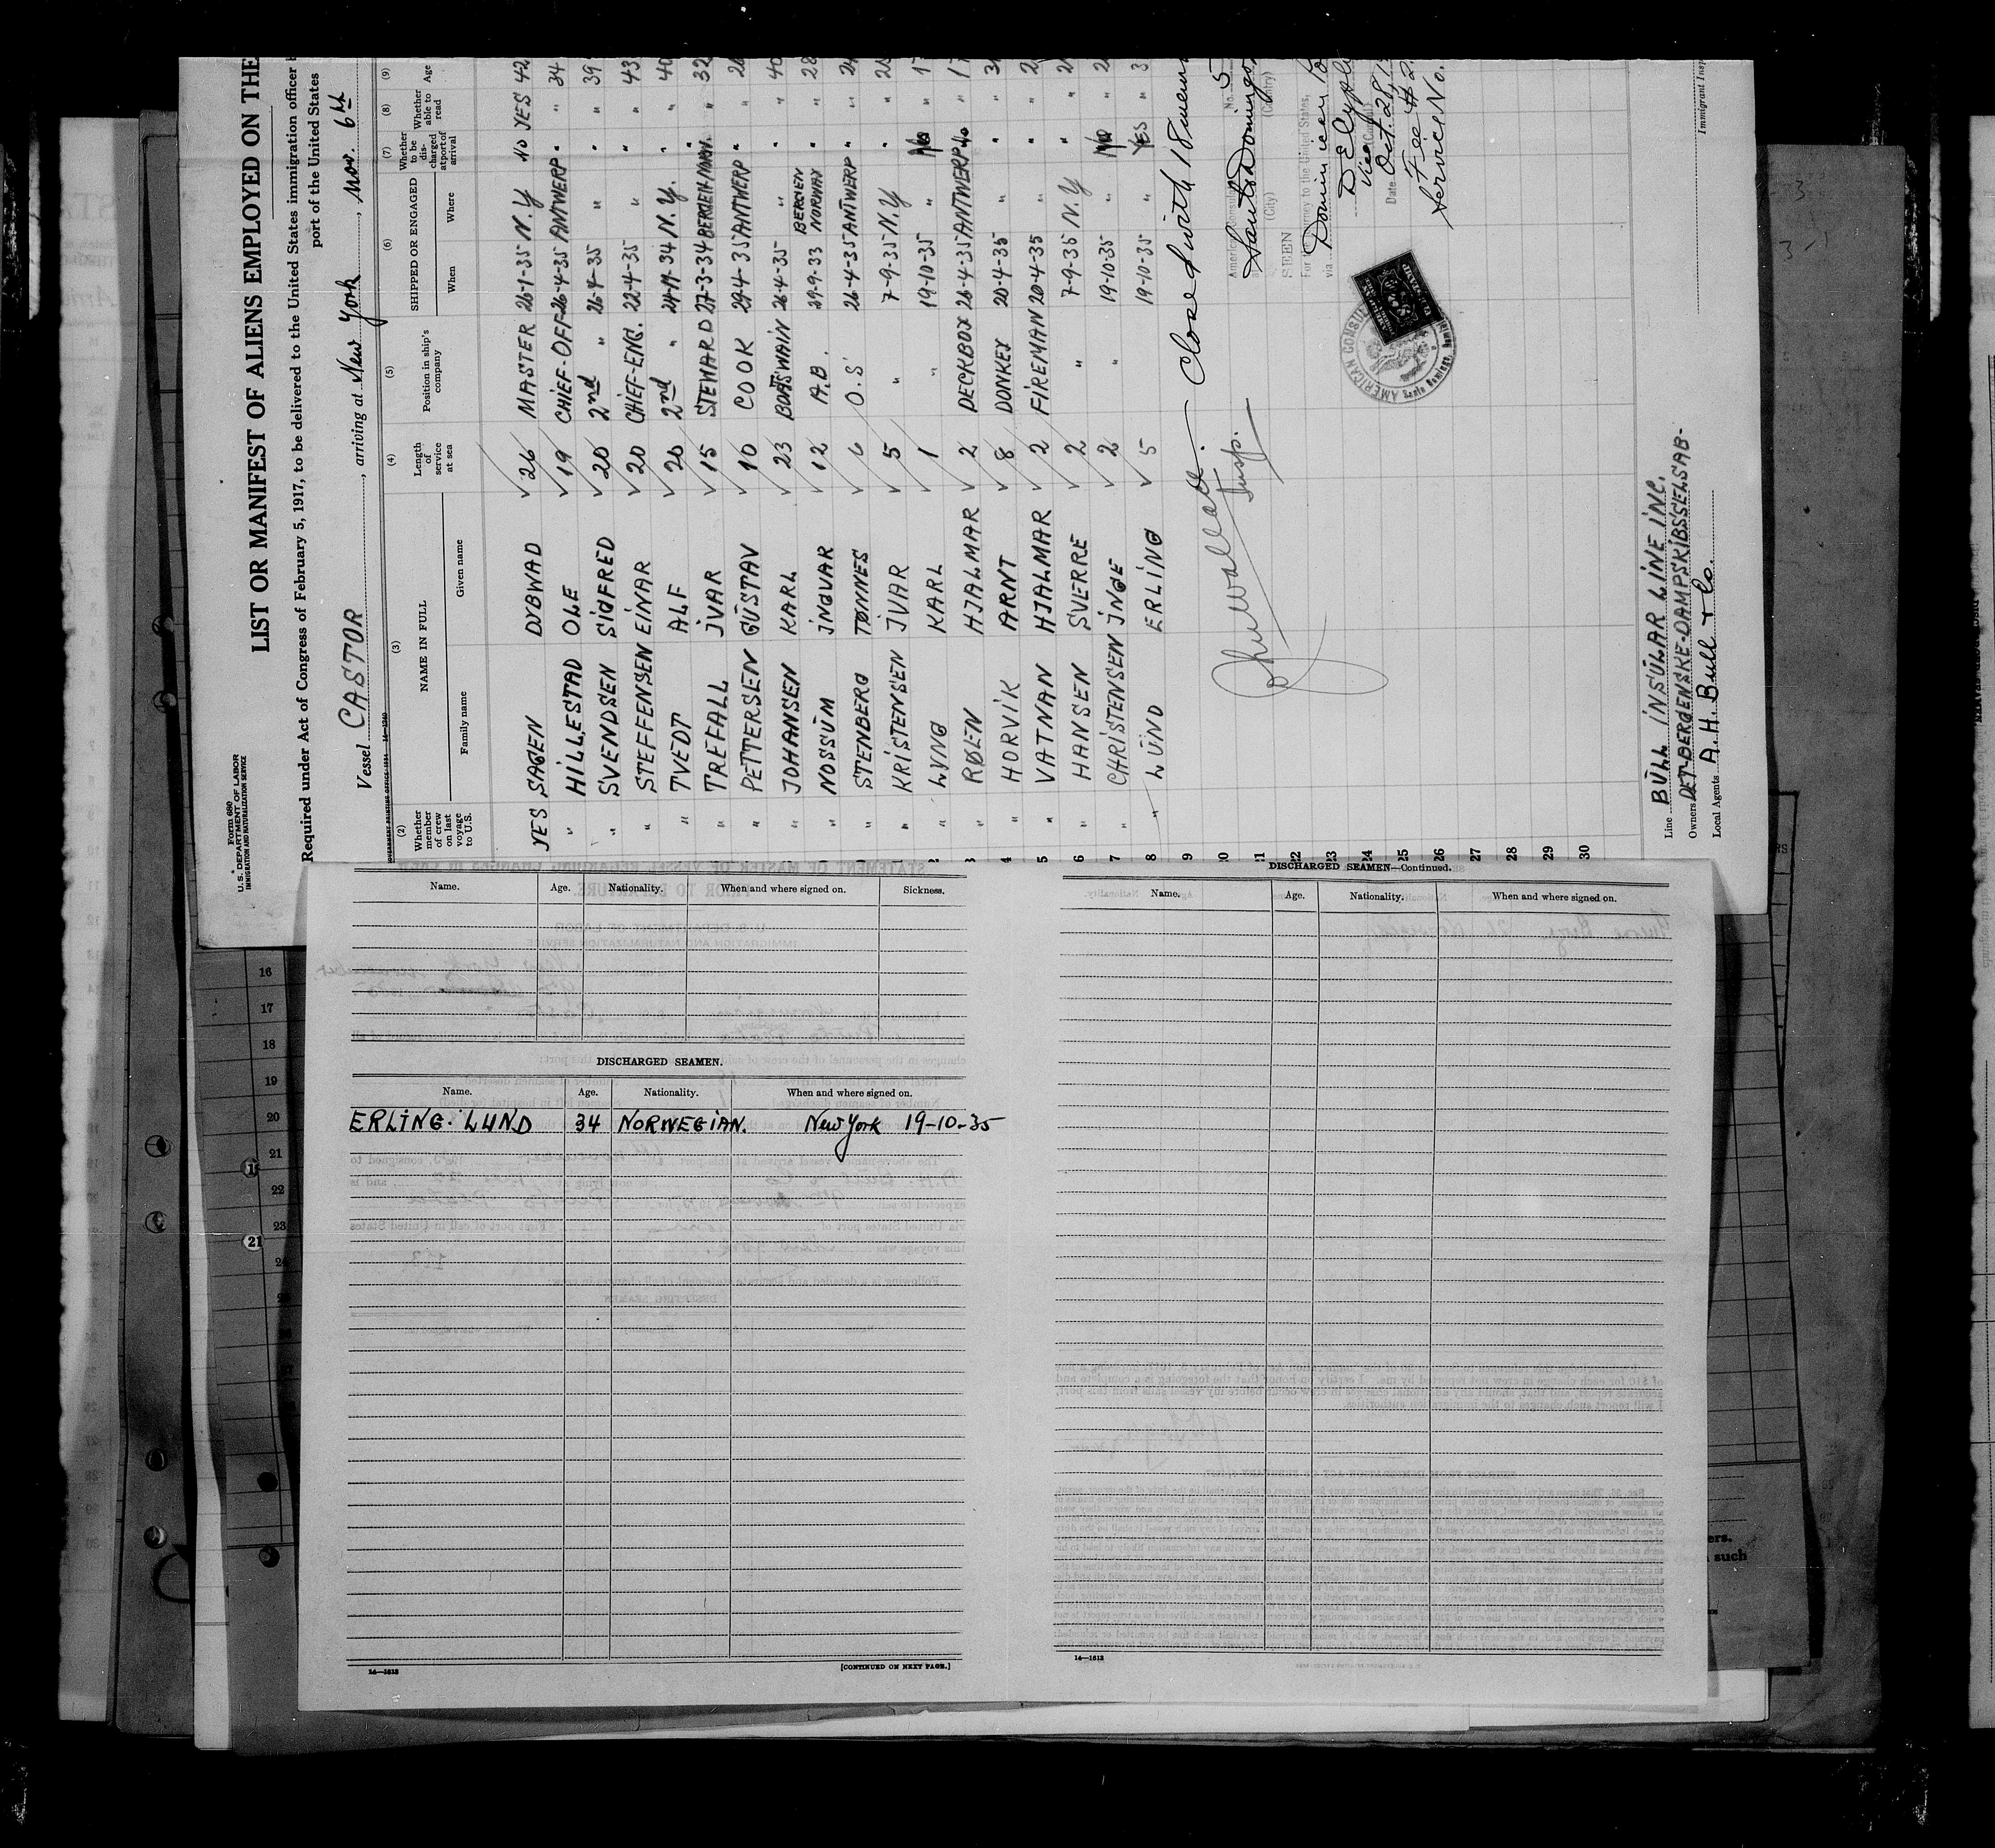 Form 680
U. S. DEPARTMENT OF LABOR
IMMIGRATION AND NATURALIZATION SERVICE
LIST OR MANIFEST OF ALIENS EMPLOYED ON THE
Required under Act of Congress of February 5, 1917, to be delivered to the United States immigration officer
port of the United States
Vessel CASTOR, arriving at New York, Nov. 6th
(2) (3) (4) (5) (6) (7) (8) (9)
Whether member of crew on last voyage to U.S. NAME IN FULL Family name Given name Length of service at sea Position in ship's company SHIPPED OR ENGAGED When Where Whether to be discharged at port of arrival Whether able to read Age
YES SAGEN DYBWAD 26 MASTER 26-1-35 N.Y NO YES 42
" HILLESTAD OLE 19 CHIEF-OFF 26-4-35 ANTWERP " " 34
" SVENDSEN SIGFRED 20 2nd " 26-4-35 " " " 39
" STEFFENSEN EINAR 20 CHIEF-ENG. 22-4-35 " " " 43
" TVEDT ALF 20 2nd " N.Y. " " 40
" TREFALL IVAR 15 STEWARD 27-3-34 " " 32
" PETTERSEN GUSTAV 10 COOK 29-4-35 ANTWERP " "
" JOHANSEN KARL 23 BOATSWAIN 26-4-35 " " " 40
" NOSSUM INGVAR 12 A.B. 29-9-33 BERGEN NORWAY " " 28
" STENBERG TØNNES 6 O.S 26-4-35 ANTWERP " "
" KRISTENSEN IVAR 5 " 7-9-35 N.Y " "
2 " LYNG KARL 1 " 19-10-35 " No "
3 " RØLEN HJALMAR 2 DECKBOY 26-4-35 ANTWERP No "
4 " HORVIK ARNT 8 DONKEY 20-4-35 " " "
5 " VATNAN HJALMAR 2 FIREMAN 20-4-35 " " "
6 " HANSEN SVERRE 2 " 7-9-35 N.Y " "
7 " CHRISTENSEN INGE 2 " 19-10-35 " No "
8 " LUND ERLING 5 19-10-35 " YES " 3
9 Closed with 18
20
21
22
23
24
25
26
27
28
29
30
Insp.
American Consul No. 5
at Santo Domingo,
(City) (Country)
SEEN
For journey to the United States,
via Dominican
Vice Consul
Date Oct. 28, 1
Fee # 2
Service No.
AMERICAN CONSUL
Line BULL INSULAR LINE INC.
Owners DET-BERGENSKE-DAMPSKIBSSELSAB-
Local Agents A.H. Bull & Co.
Immigrant Insp
Name. Age. Nationality. When and where signed on. Sickness.
DISCHARGED SEAMEN.
Name. Age. Nationality. When and where signed on.
ERLING LUND 34 NORWEGIAN. New York 19-10-35
14—1613
[CONTINUED ON NEXT PAGE.]
DISCHARGED SEAMEN—Continued.
Name. Age. Nationality. When and where signed on.
14—1613
16
17
18
19
20
21
22
23
ers.
such